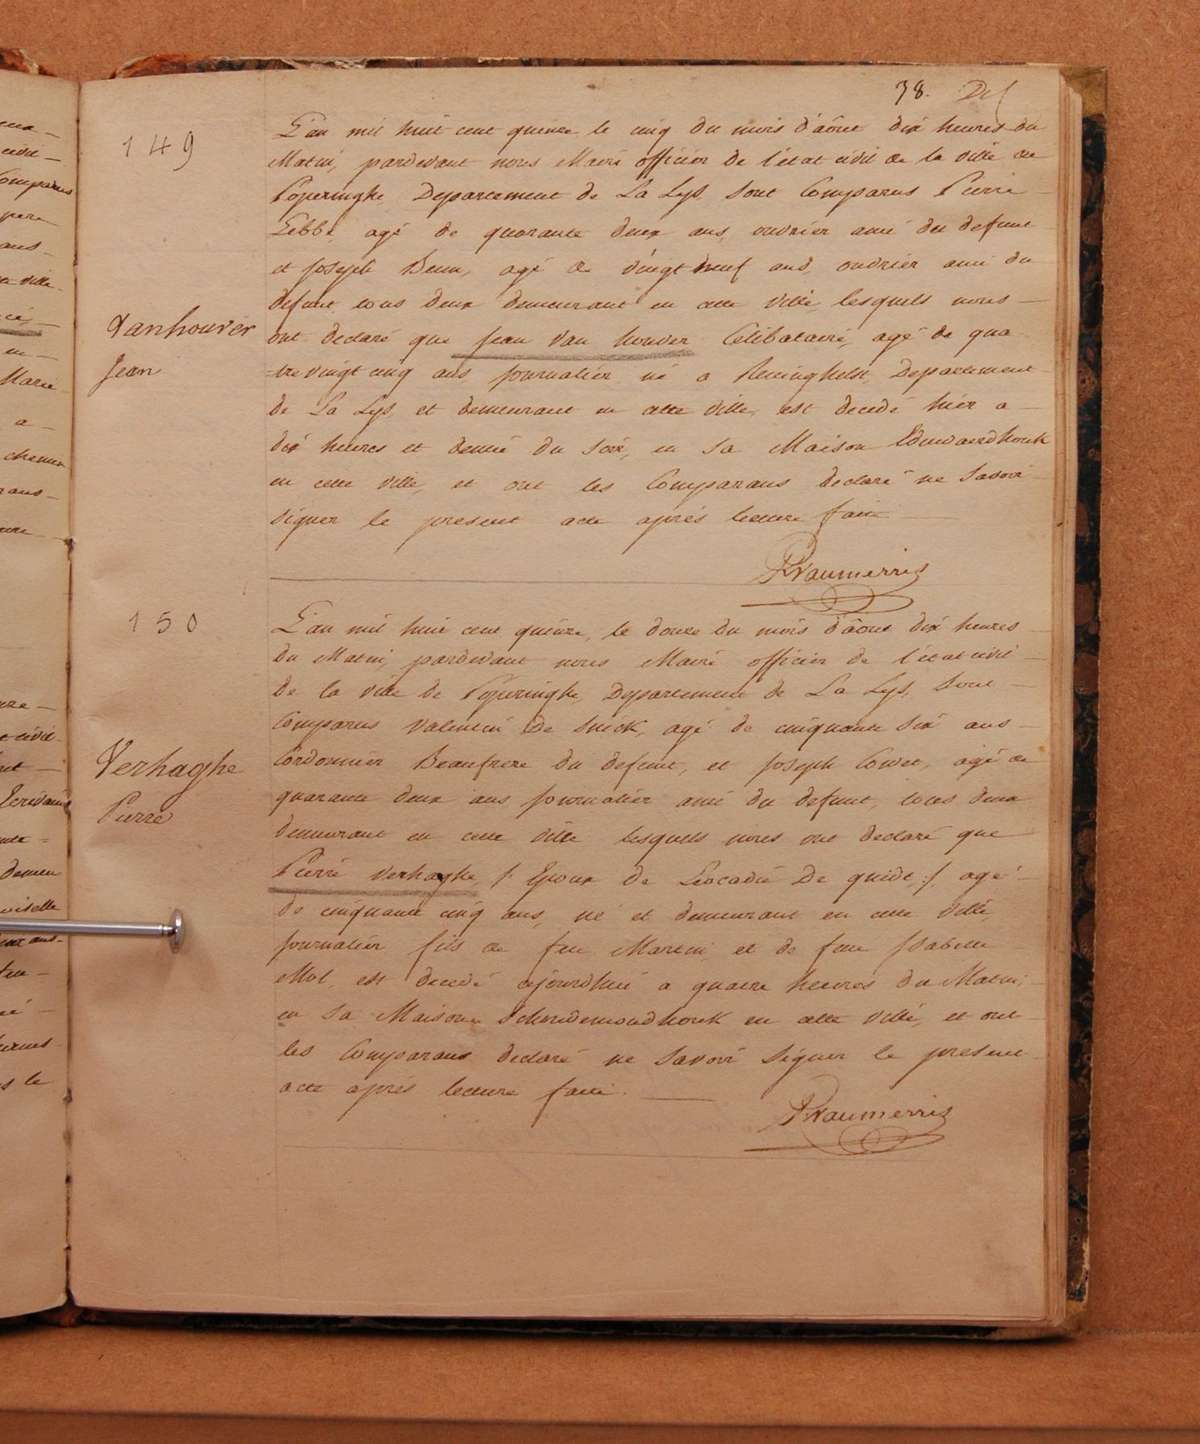 38.
149
L'an mil huit cent quinze le cinq du mois d'août dix heures du
Matin, pardevant nous Maire officier de l'état civil de la ville de
Poperinghe Departement de La Lys, sont Comparus Pierre
Lebbe, agé de quarante deux ans, ouvrier ami du defunt
et joseph Beun, agé de vingt neuf ans, ouvrier ami du
defunt tous deux demeurant en cette ville, lesquels nous
Vanhouver
Jean
ont declaré que jean van houver Celibataire, agé de qua
trevingt cinq ans journalier né a Reninghelst, Departement
de La Lys, et demeurant en cette ville, est decedé hier a
dix heures et demie du soir, en sa Maison
en cette ville, et ont les Comparans declaré ne savoir
signer le present acte après lecture faite
PVaumerris
150
L'an mil huit cent quinze, le douze du mois d'août dix heures
du Matin, pardevant nous Maire officier de l'état civil
de la ville de Poperinghe, Departement de La Lys, sont
Comparus Valentin De Snick, agé de cinquante six ans
Verhaghe
Pierre
Cordonnier Beaufrere du defunt, et joseph agé de
quarante deux ans journalier ami du defunt, tous deux
demeurant en cette ville lesquels nous ont declaré que
Pierre Verhaghe /: Epoux de Leocadie De quidt :/ agé
de cinquante cinq ans, né et demeurant en cette ville,
journalier fils de feu Martin et de feue Isabelle
Mol, est decedé ajourdhui a quatre heures du Matin,
en sa Maison en cette ville, et ont
les Comparans declaré ne savoir signer le present
acte après lecture faite.
PVaumerris